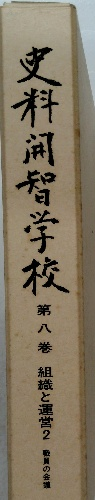 史料開智学校
第八巻 組織と運営2 職員の会議